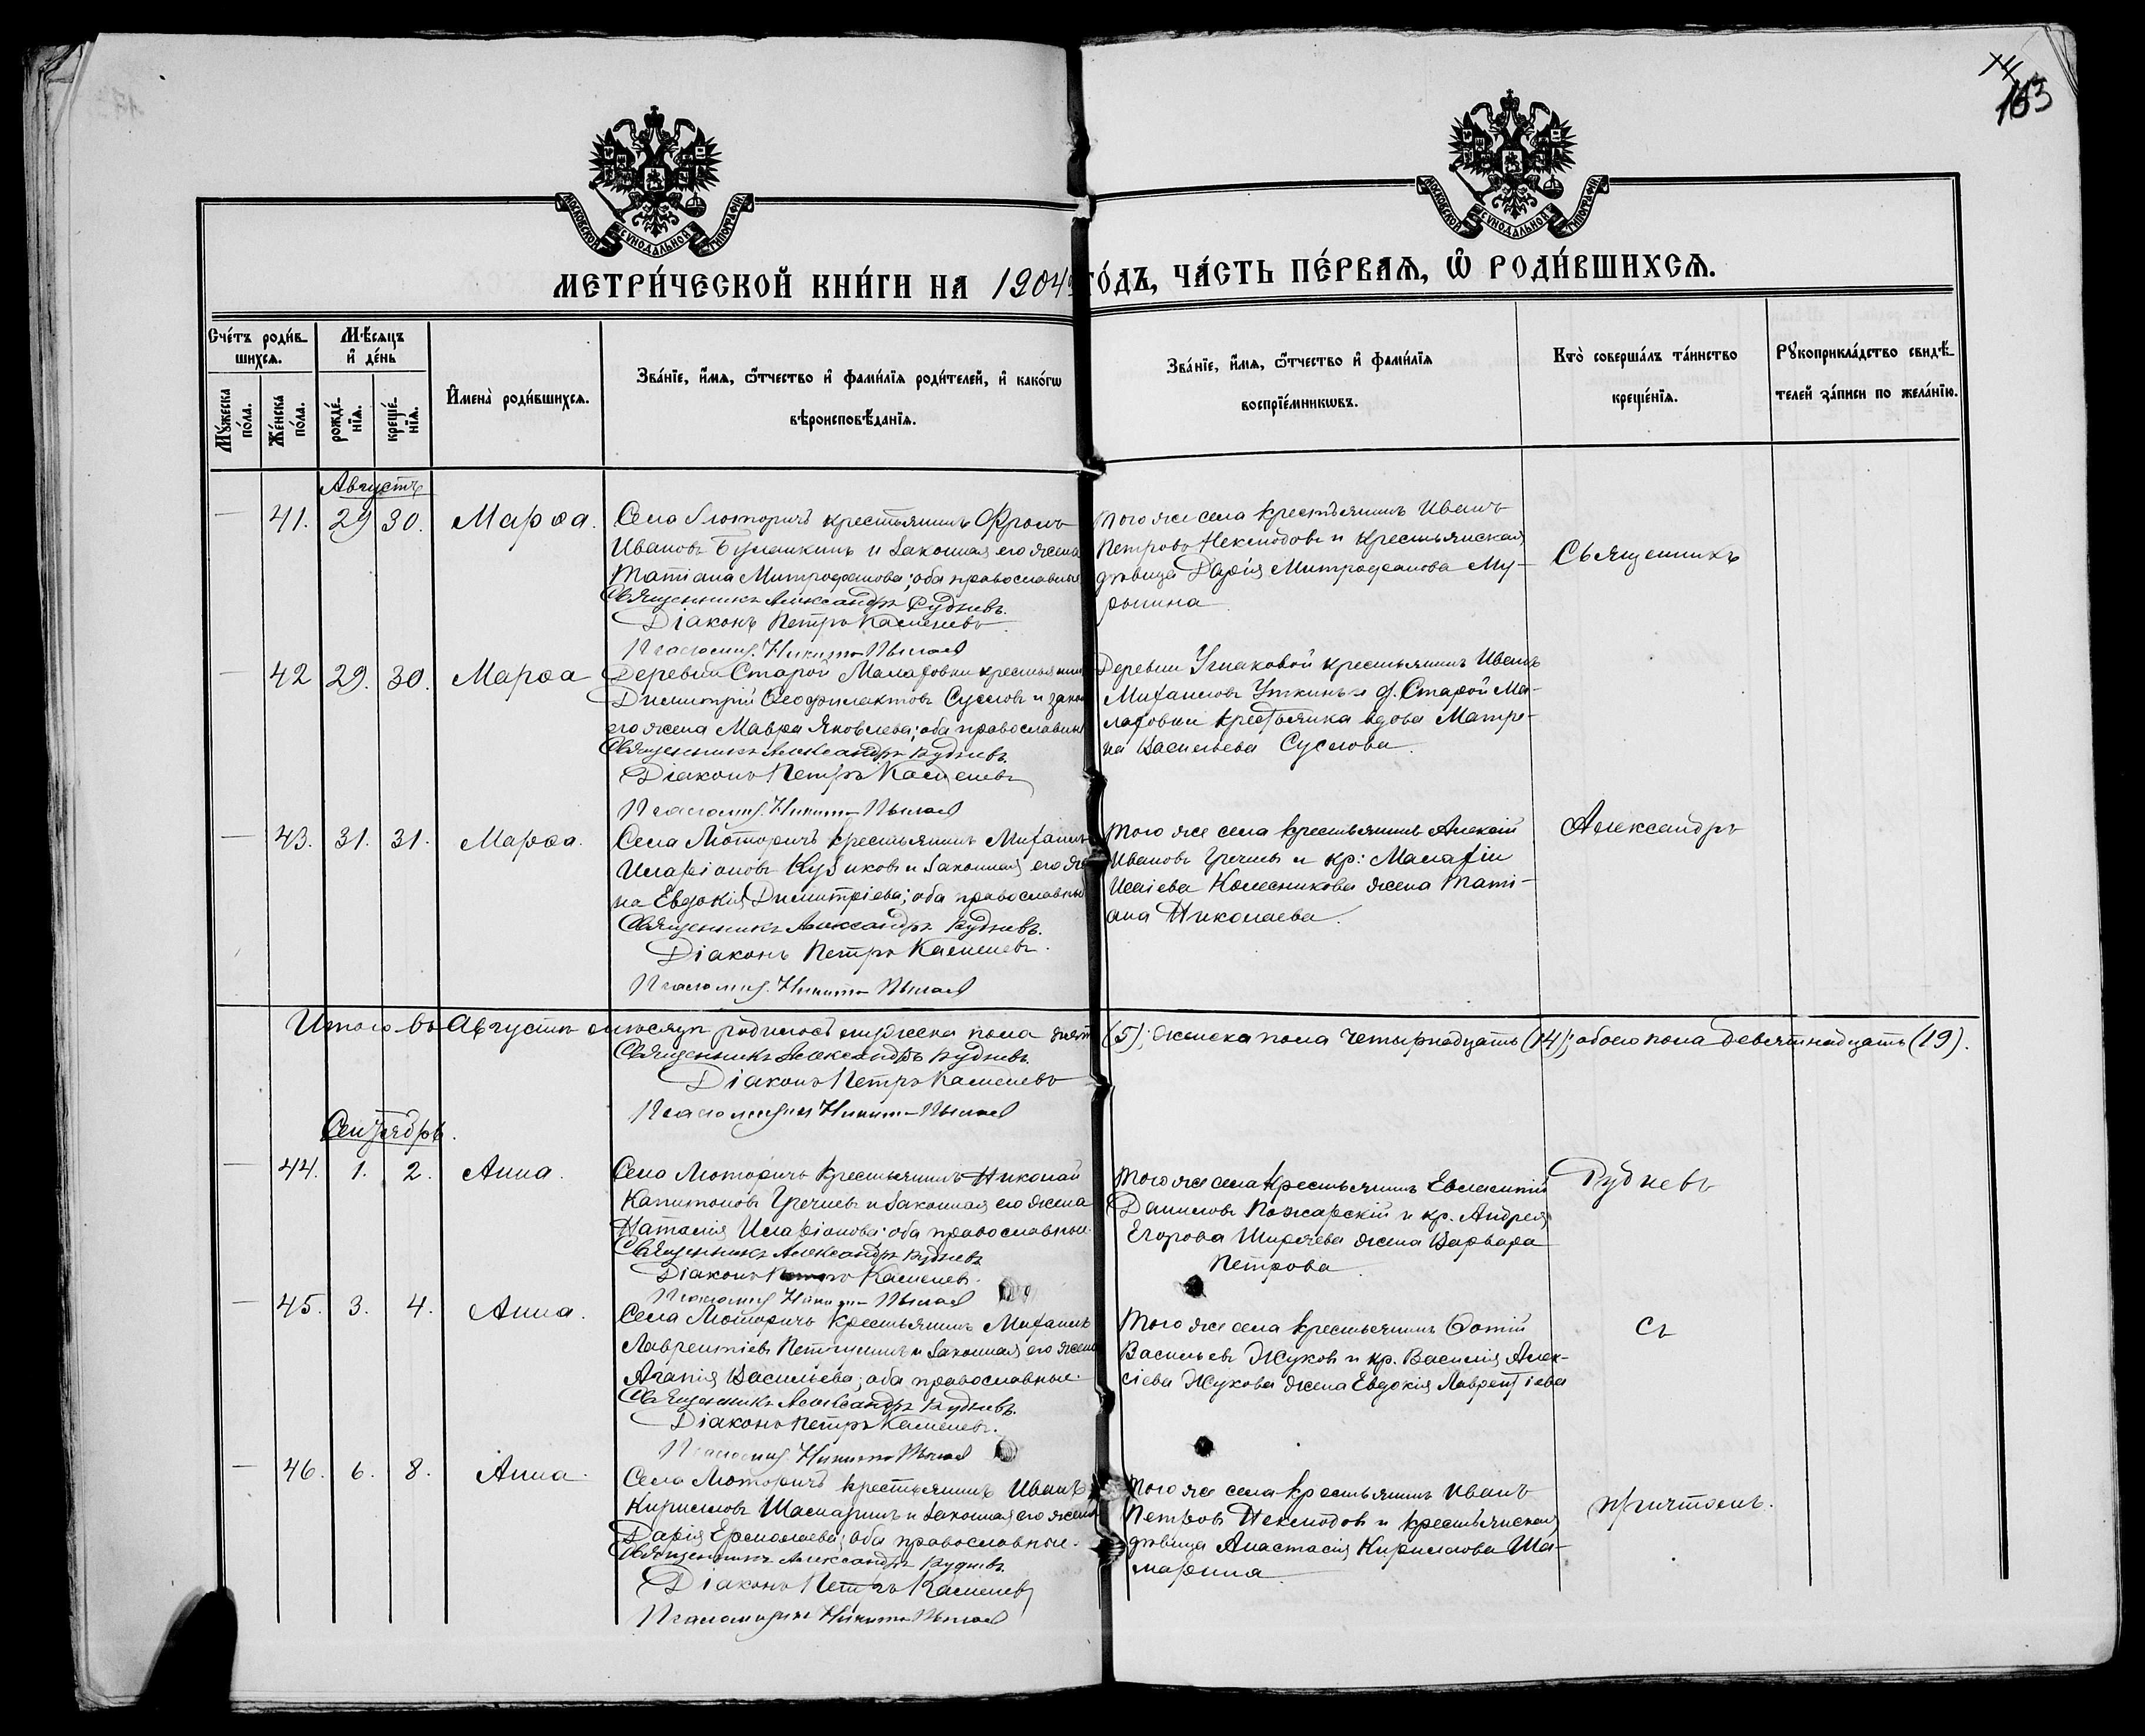 183
МОСКОВСКОЙ СѴНОДАЛЬНОЙ ТИПОГРАФІИ
МОСКОВСКОЙ СѴНОДАЛЬНОЙ ТИПОГРАФІИ
МЕТРИ́ЧЕСКОЙ КНИ́ГИ НА 1904й ГО́ДЪ, ЧА́СТЬ ПЕ́РВАѦ, Ѽ РОДИ́ВШИХСѦ.
Сче́тъ роди́в-
шихсѧ.
Мꙋ́жеска по́ла.
Же́нска по́ла.
Мѣ́сѧцъ
и҆ де́нь
рожде́-
нїѧ.
креще́-
нїѧ.
И҆мена̀ роди́вшихсѧ.
Зва́нїе, и҆́мѧ, ѻ҆́тчество и҆ фами́лїѧ роди́телей, и҆ како́гѡ
вѣроисповѣ́данїѧ.
Зва́нїе, и҆́мѧ, ѻ҆́тчество и҆ фами́лїѧ
воспрїе́мникѡвъ.
Кто̀ соверша́лъ та́инство
креще́нїѧ.
Рꙋкоприкла́дство свидѣ́-
телей за́писи по жела́нїю.
Августъ
— 41. 29 30. Марѳа.
Села Люторичъ крестьянинъ Фролъ
Ивановъ Булашкинъ и законная его жена
Татіана Митрофанова; оба православные
Священникъ Александръ Рудневъ.
Діаконъ Петръ Каменевъ
Псаломщ. Никита
того же села крестьянинъ Иванъ
Петровъ Неклюдовъ и крестьянская
дѣвица Дарія Митрофанова Му-
рынина
Священникъ
— 42 29. 30. Марѳа
Деревни Старой Малаховки крестьянинъ
Димитрій Ѳеофилактовъ Сусловъ и закон
его жена Мавра Яковлева; оба православные
Священникъ Александръ Рудневъ.
Діаконъ Петръ Каменевъ
Псаломщ. Никита
Деревни Ушаковой крестьянинъ Иванъ
Михаиловъ Уткинъ и д. Старой Ма-
лаховки крестьянка вдова Матре-
на Васильева Суслова.
— 43. 31. 31. Марѳа.
Села Люторичъ крестьянинъ Михаилъ
Иларіоновъ Кузиковъ и законная его же-
на Евдокія Димитріева; оба православные
Священникъ Александръ Рудневъ.
Діаконъ Петръ Каменевъ.
Псаломщ. Никита
того же села крестьянинъ Алексій
Ивановъ Гречневъ и кр: Малахіи
Исаіева Колесникова жена Тати-
ана Николаева.
Александръ
Итого въ Августѣ мѣсяцѣ родилось мужеска пола пять (5); женска пола четырнадцать (14); обоего пола девятнадцать (19).
Священникъ Александръ Рудневъ.
Діаконъ Петръ Каменевъ
Псаломщикъ Никита
Сентябрь.
— 44. 1. 2. Анна.
Села Люторичъ крестьянинъ Николай
Капитоновъ Гречневъ и законная его жена
Наталія Иларіонова; оба православные
Священникъ Александръ Рудневъ
Діаконъ Петръ Каменевъ.
Псаломщ Никита
того же села крестьянинъ Евлампій
Даниловъ Пожарскій и кр. Андрея
Егорова Ширяева жена Варвара
Петрова.
Рудневъ
— 45. 3. 4. Анна.
Села Люторичъ крестьянинъ Михаилъ
Лаврентіевъ и законная его жена
Агапія Васильева; оба православные.
Священникъ Александръ Рудневъ.
Діаконъ Петръ Каменевъ.
Псаломщ Никита
Того же села крестьянинъ Фотій
Васильевъ Жуковъ и кр. Василія Алек-
сіева Жукова жена Евдокія Лаврентіева
съ
— 46. 6. 8. Анна.
Села Люторичъ крестьянинъ Иванъ
Кирилловъ Шамаринъ и законная его жена
Дарія Ермолаева; оба православные.
Священникъ Александръ Рудневъ.
Діаконъ Петръ Каменевъ
Псаломщикъ Никита
того же села крестьянинъ Иванъ
Петровъ Неклюдовъ и крестьянская
дѣвица Анастасія Кириллова Ша-
марина
причтомъ.